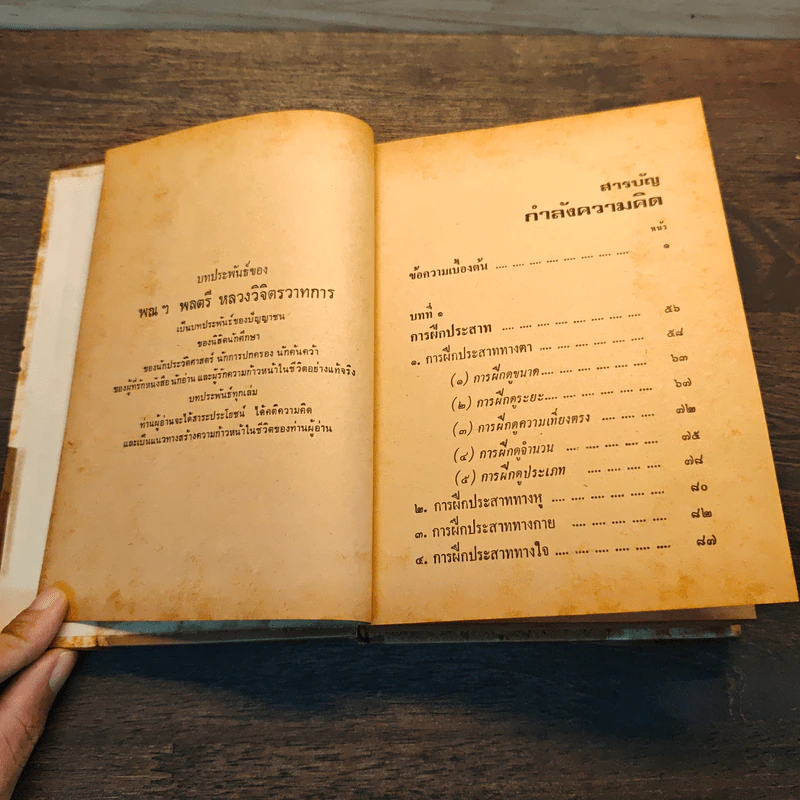 บทประพันธ์ของ
พณ ฯ พลตรี หลวงวิจิตรวาทการ
เป็นบทประพันธ์ของปัญญาชน
ของนิสิตนักศึกษา
ของนักประวัติศาสตร์ นักการปกครอง นักค้นคว้า
ของผู้ที่รักหนังสือ นักอ่าน และผู้รักความก้าวหน้าในชีวิตอย่างแท้จริง
บทประพันธ์ทุกเล่ม
ท่านผู้อ่านจะได้สาระประโยชน์ ได้คติความคิด
และเป็นแนวทางสร้างความก้าวหน้าในชีวิตของท่านผู้อ่าน
สารบัญ
กำลังความคิด
หน้า
ข้อความเบื้องต้น .... .... .... .... .... .... .... ๑
บทที่ ๑
การฝึกประสาท .... .... .... .... .... .... .... ๕๖
๑. การฝึกประสาททางตา .... .... .... .... .... .... ๕๘
(๑) การฝึกดูขนาด.... .... .... .... .... .... ๖๓
(๒) การฝึกดูระยะ.... .... .... .... .... .... ๖๗
(๓) การฝึกดูความเที่ยงตรง .... .... .... .... ๗๒
(๔) การฝึกดูจำนวน .... .... .... .... .... ๗๕
(๕) การฝึกดูประเภท .... .... .... .... .... ๗๘
๒. การฝึกประสาททางหู .... .... .... .... .... .... ๘๐
๓. การฝึกประสาททางกาย .... .... .... .... .... ๘๒
๔. การฝึกประสาททางใจ .... .... .... .... .... .... ๘๗